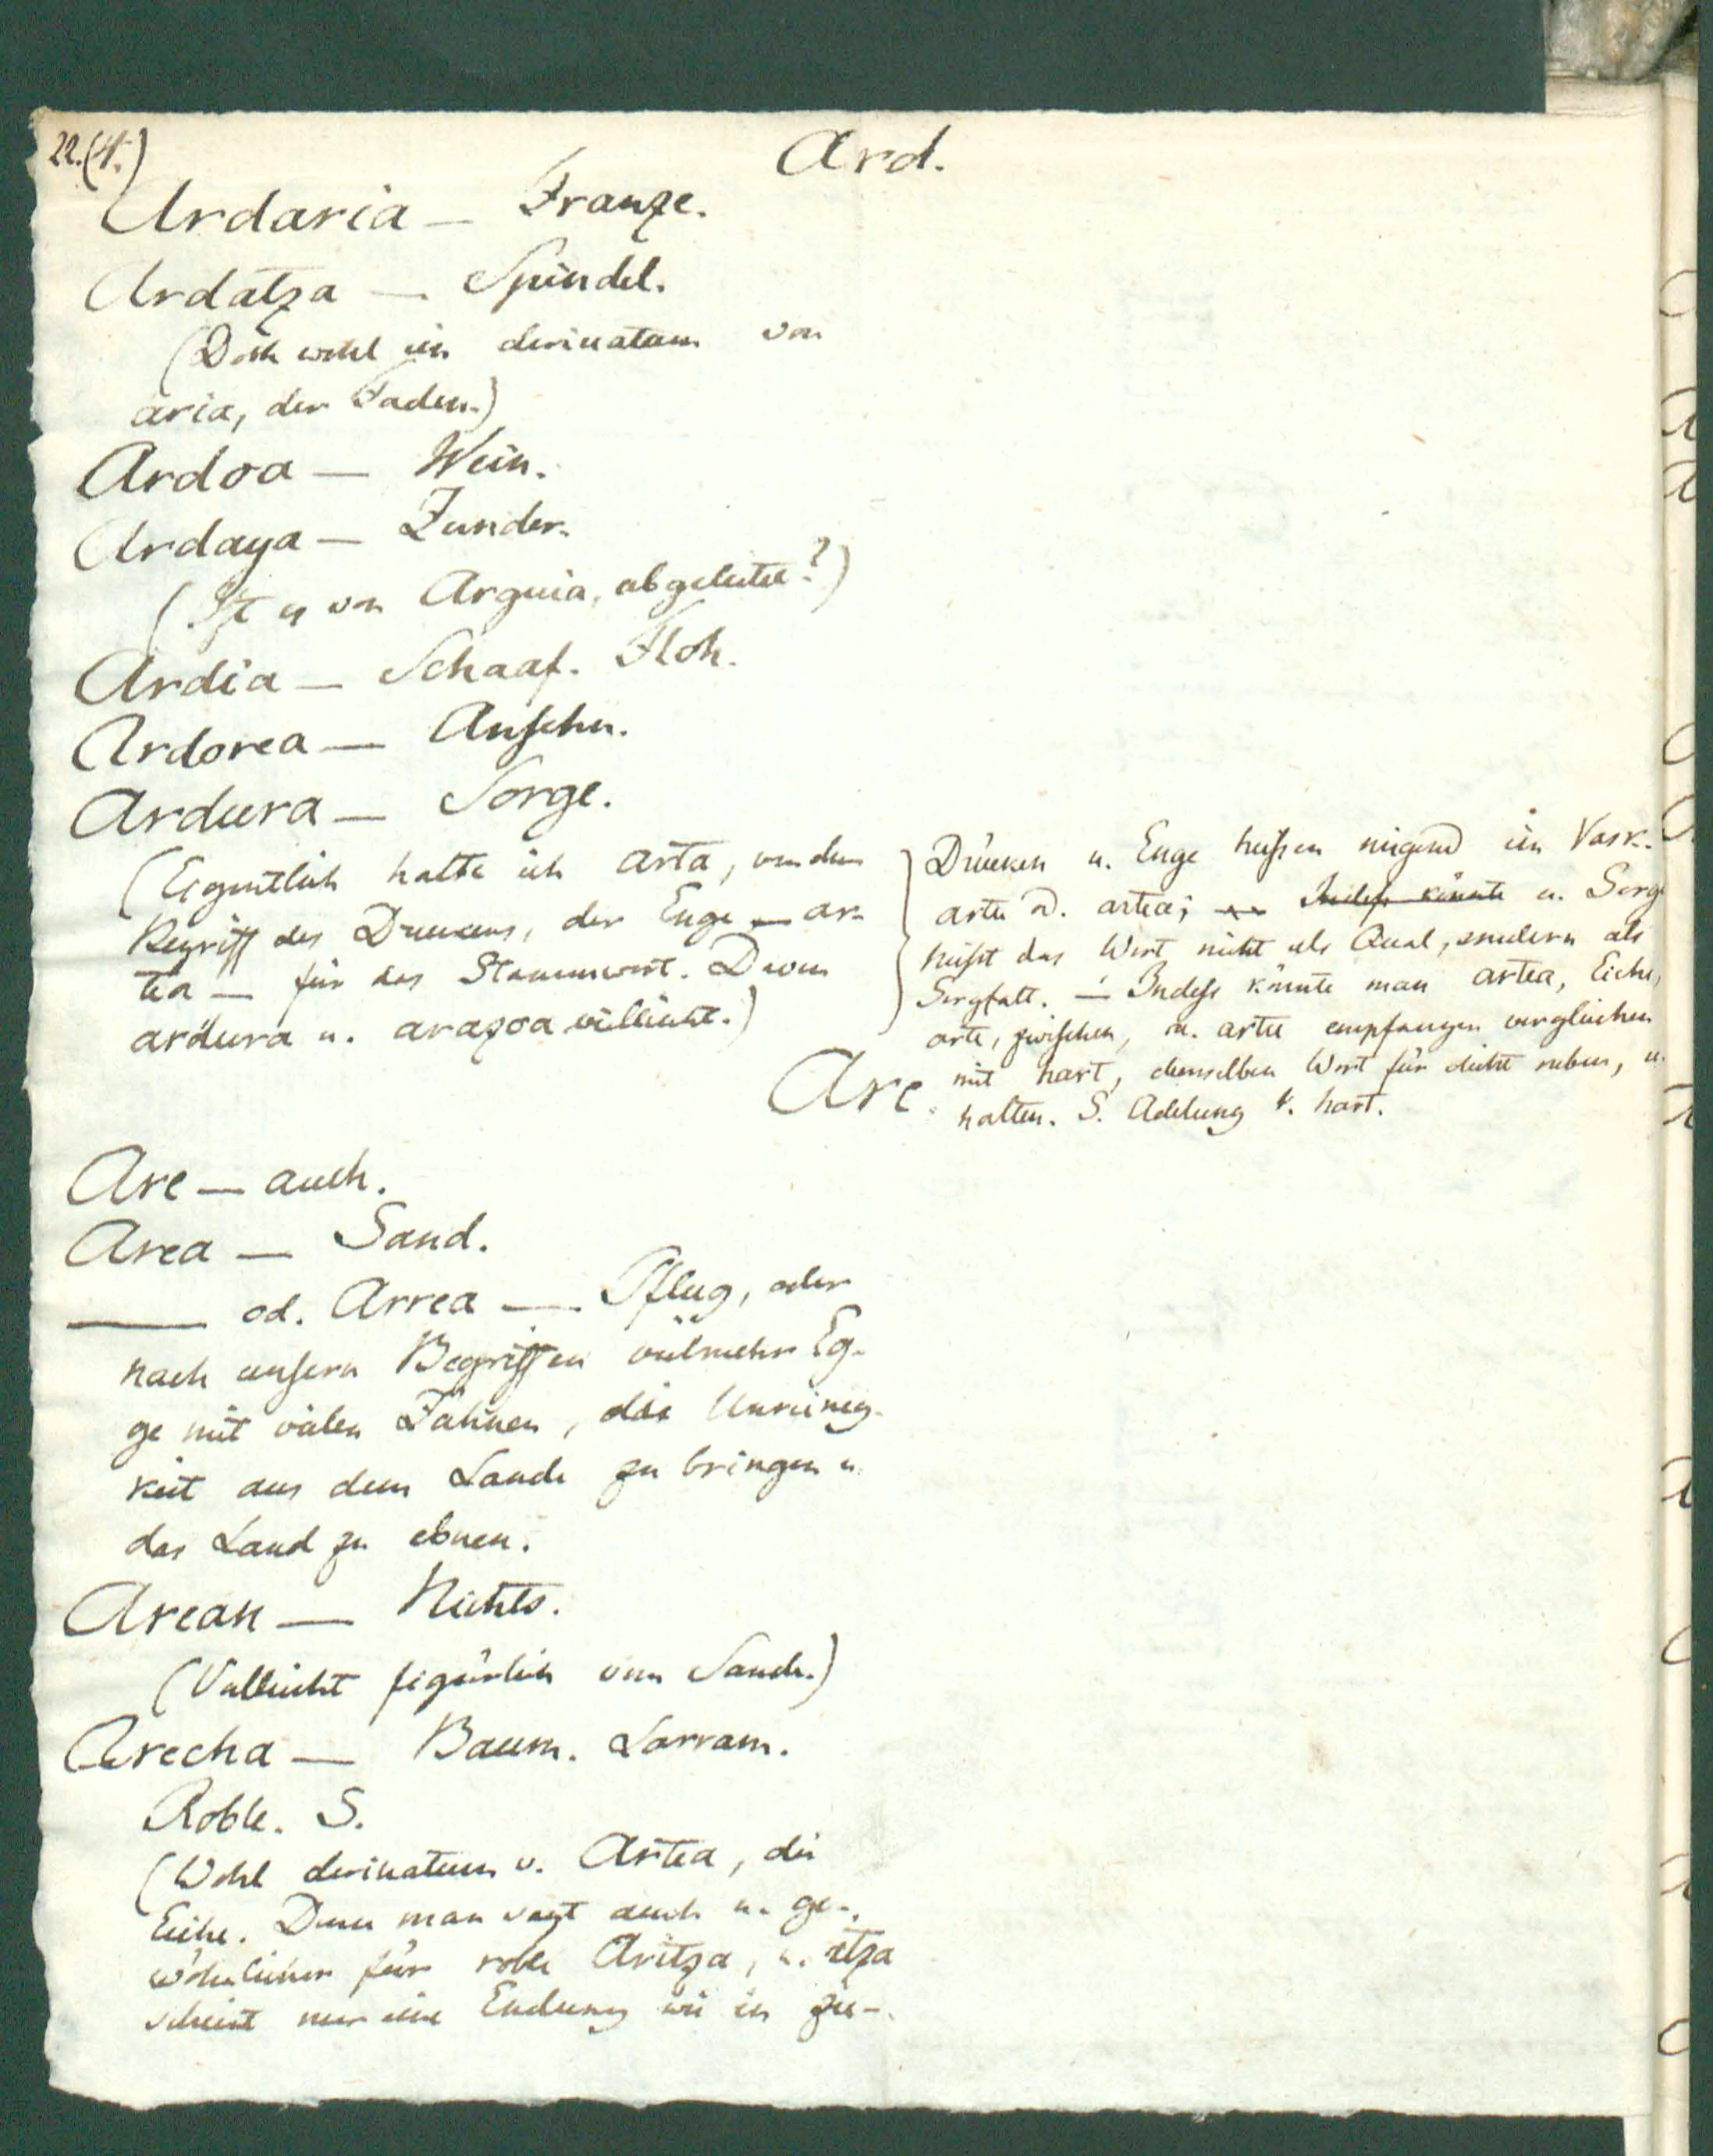 22.(4.)
Ard.
Ardaria — Franze.
Ardatza — Spindel.
(Doch wohl ein derivatum von
aria, der Faden.)
Ardoa — Wein.
Ardaya — Zunder.
(Ist es von Arguia, abgeleitet?)
Ardia — Schaaf. Floh.
Ardorea — Ansehn.
Ardura — Sorge.
(Eigentlich halte ich arta, von dem
Begriff des Druckens, der Enge — ar-
tea — für das Stammwort. Davon
ardura u. arazoa vielleicht.)
Drücken u. Enge heissen nirgend im Vask.
arte od. artea; Indess könnte u. Sorge
heisst das Wort nicht als Qual, sondern als
Sorgfalt. — Indess könnte man artea, Eiche,
arte, zwischen, u. artu empfangen vergleichen
mit hart, demselben Wort für dicht neben, u.
halten. S. Adelung v. hart.
Are.
Are — auch.
Area — Sand.
— od. Arrea — Pflug, oder
nach unsern Begriffen vielmehr Eg-
ge mit vielen Zähnen, die Unreinig-
keit aus dem Lande zu bringen u.
das Land zu ebnen.
Arean — Nichts.
(Vielleicht figürlich vom Sande.)
Arecha — Baum. Larram.
Roble. S.
(Wohl derivatum v. Artea, die
Eiche. Denn man sagt auch u. ge-
wöhnlicher für roble Aritza, u. itza
scheint nur eine Endung wie in zu-